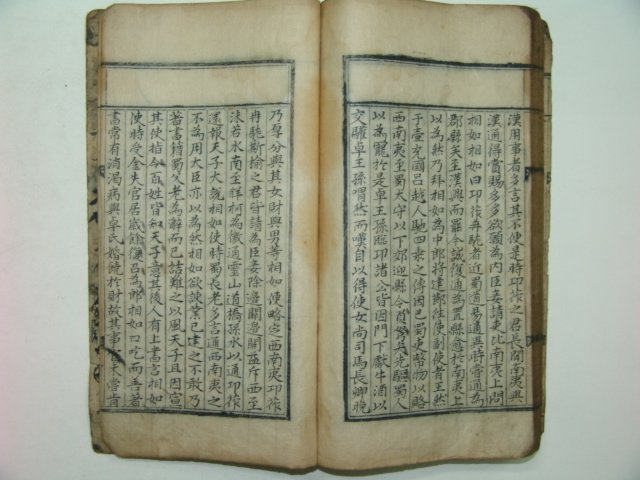 漢用事者多言其不便是時邛筰之君長聞南夷與
漢通得賞賜多多欲願為內臣妾請吏比南夷上問
相如相如曰邛筰冉駹者近蜀道易通與時常通為
郡縣矣至漢興而罷今誠復通為置縣愈於南夷上
以為然乃拜相如為中郎將建節往使副使者王然
于壺充國呂越人馳四乘之傳因巴蜀吏幣物以略
西南夷至蜀太守以下郊迎縣令負弩矢先驅蜀人
以為寵於是卓王孫臨邛諸公皆因門下獻牛酒以
交驩卓王孫喟然而嘆自以得使女尚司馬長卿晚
乃厚分與其女財與男等相如便略定西南夷邛筰
冉駹斯榆之君皆請為臣妾除邊關邊關益斥西至
沫若水南至牂柯為徼通靈山道橋孫水以通邛筰
還報天子大說相如使時蜀長老多言通西南夷之
不為用大臣亦以為然相如欲諫業已建之不敢乃
著書籍蜀父老為辭而已詰難之以風天子且因宣
其使指令百姓皆知天子意其後人有上書言相如
使時受金失官居歲餘復召為郎相如口吃而善著
書常有消渴病與卓氏婚饒於財故其事宦未嘗肯